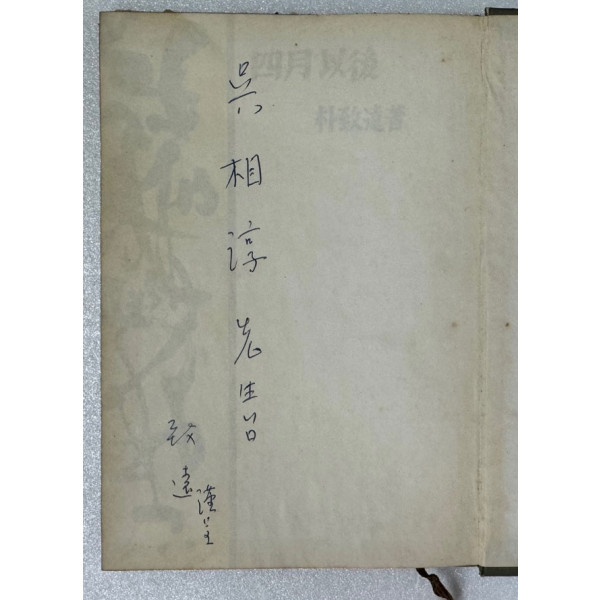 四月以後
朴致遠著
吳相淳先生
致遠 謹呈